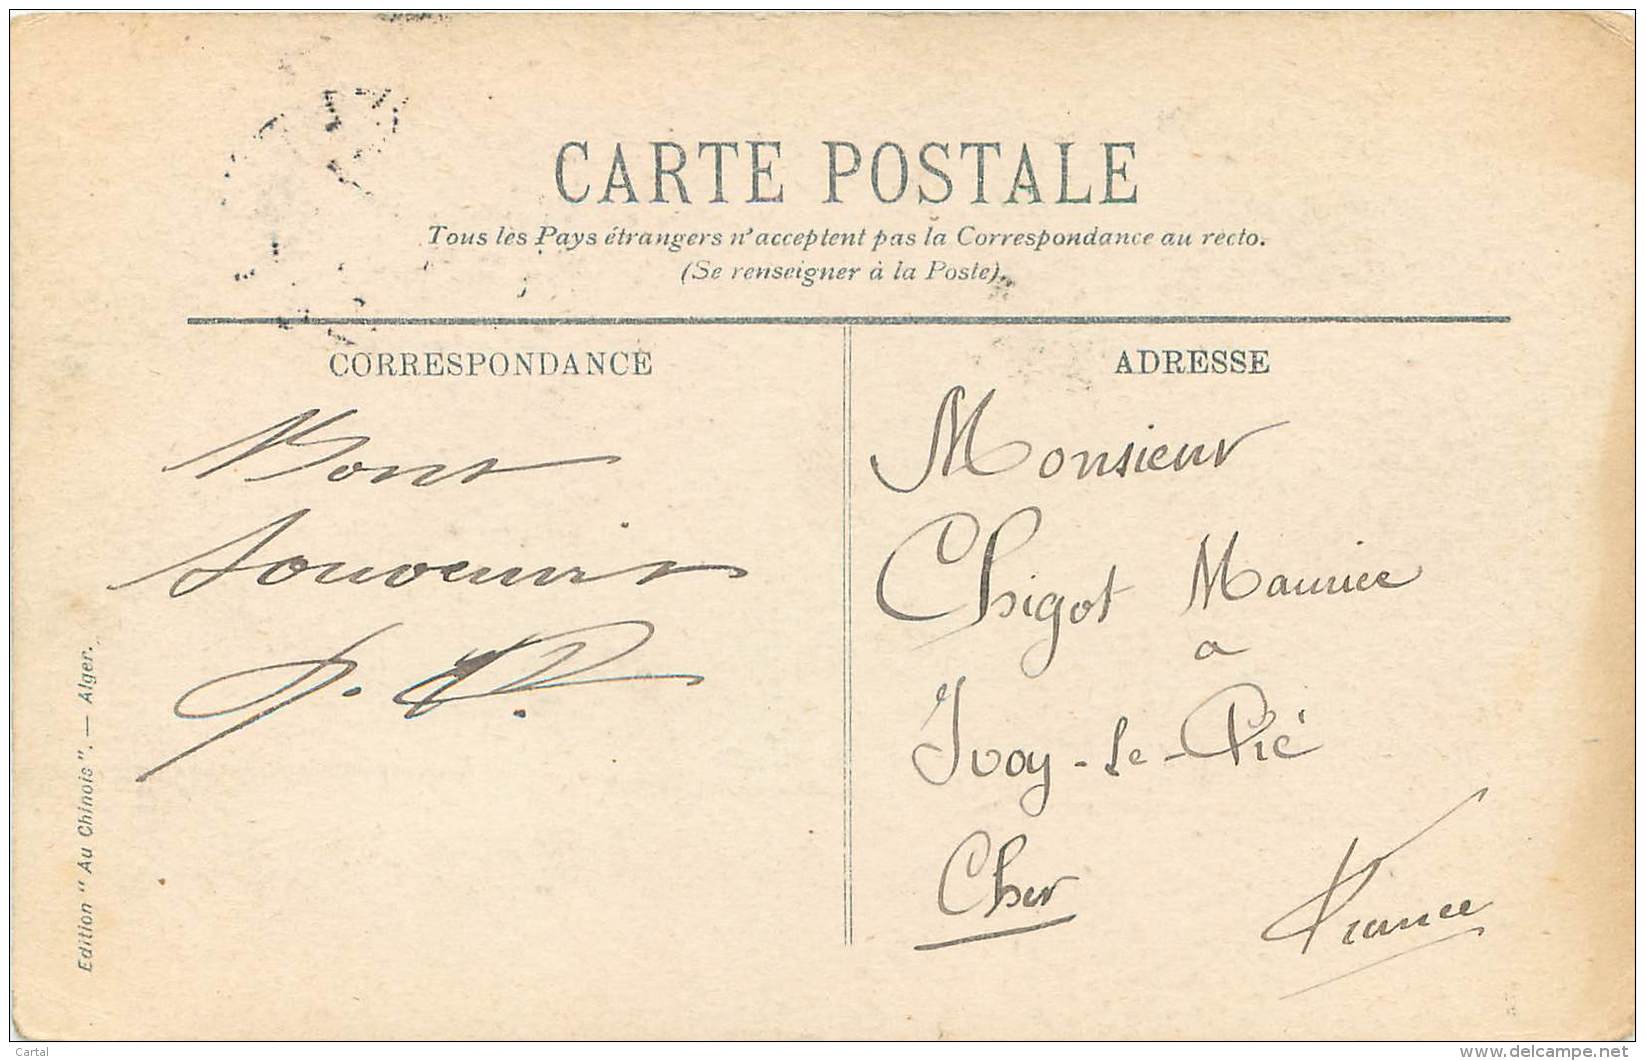 CARTE POSTALE
Tous les Pays étrangers n'acceptent pas la Correspondance au recto.
(Se renseigner à la Poste).
CORRESPONDANCE
Bons
souvenirs
ADRESSE
Monsieur
Chigot Maurice
a
Ivoy-le-Pré
Cher
France
Edition "Au Chinois". — Alger.
Cartal
delcampe.net